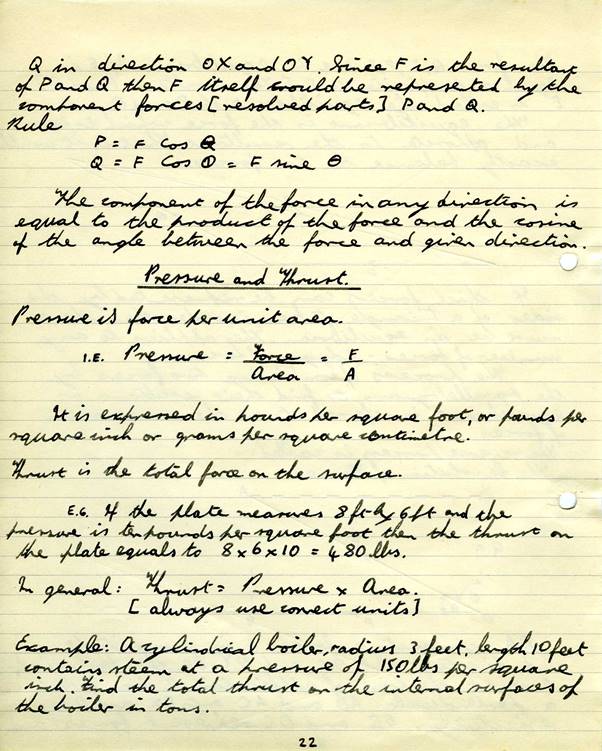 Q in direction OX and OY. Since F is the resultant
of P and Q then F itself would be represented by the
component forces [resolved parts] P and Q.
Rule
P = F Cos Q
Q = F Cos Θ = F sine Θ
The component of the force in any direction is
equal to the product of the force and the cosine
of the angle between the force and given direction.
Pressure and Thrust.
Pressure is force per unit area.
I.E. Pressure = Force/Area = F/A
It is expressed in pounds per square foot, or pounds per
square inch or grams per square centimetre.
Thrust is the total force on the surface.
E.G. If the plate measures 8ft by 6ft and the
pressure is ten pounds per square foot then the thrust on
the plate equals to 8 x 6 x 10 = 480 lbs.
In general: Thrust = Pressure x Area.
[always use correct units]
Example: A cylindrical boiler, radius 3 feet, length 10 feet
contains steam at a pressure of 150 lbs per square
inch. Find the total thrust on the internal surfaces of
the boiler in tons.
22